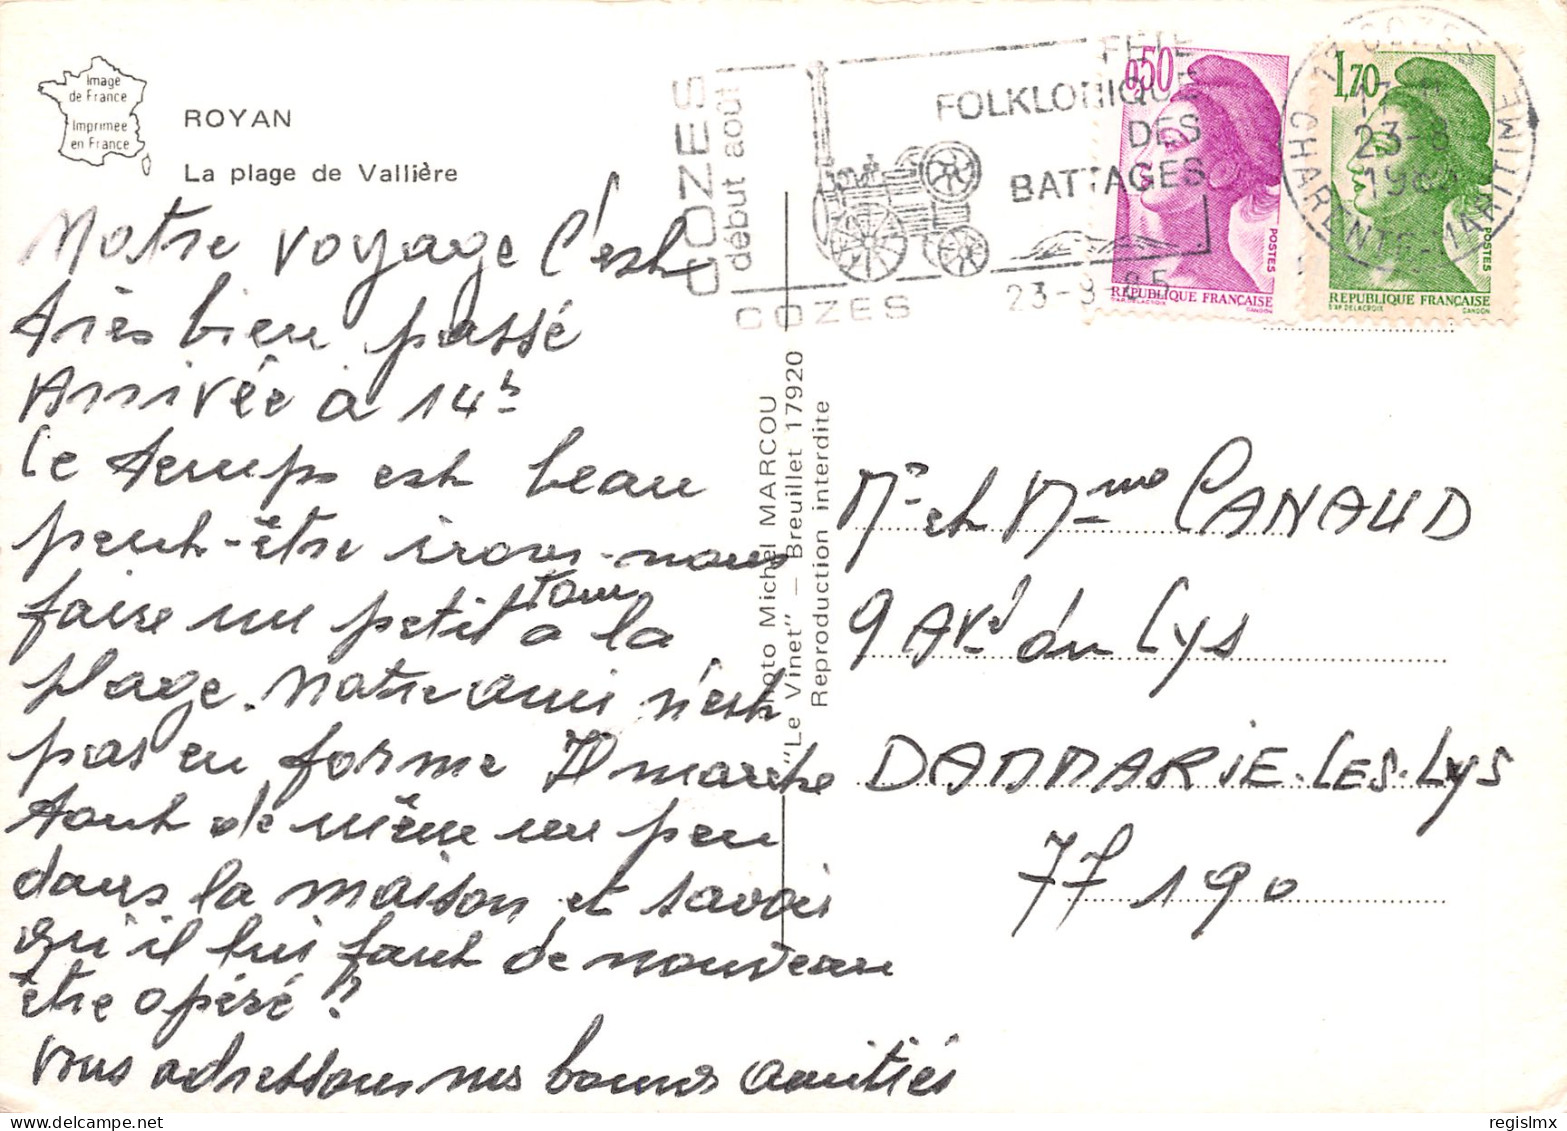 Image
de France
Imprimée
en France
ROYAN
La plage de Vallière
COZES
début août
FÊTE
FOLKLORIQUE
DES
BATTAGES
COZES
23-8-85
0,50
POSTES
REPUBLIQUE FRANÇAISE
D'AP. DELACROIX GANDON
17 COZES
23-8
CHARENTE-MARITIME
1,70
POSTES
REPUBLIQUE FRANÇAISE
D'AP. DELACROIX GANDON
Notre voyage c'est
très bien passé
Arrivée à 14h
Le temps est beau
peut-être irons-nous
faire un petit tour à la
plage. Notre ami n'est
pas en forme Il marche
tout de même un peu
dans la maison et savoir
qu'il lui faut de nouveau
être opéré ?
Vous adressons nos bonnes amitiés
Photo Michel MARCOU
"Le Vinet" — Breuillet 17920
Reproduction interdite
Mr et Mme CANAUD
9 AVE du Lys
DAMMARIE-LES-LYS
77190
regislmx